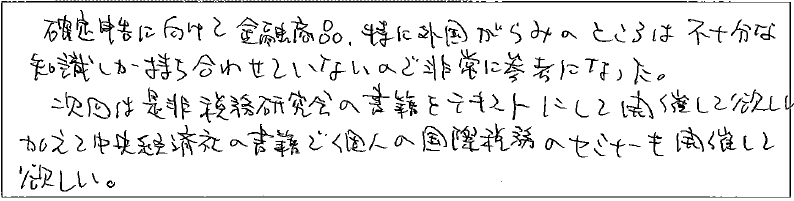 確定申告に向けて金融商品、特に外国がらみのところは不十分な
知識しか持ち合わせていないので非常に参考になった。
次回は是非税務研究会の書籍をテキストにして開催して欲しい
加えて中央経済社の書籍で個人の国際税務のセミナーも開催して
欲しい。